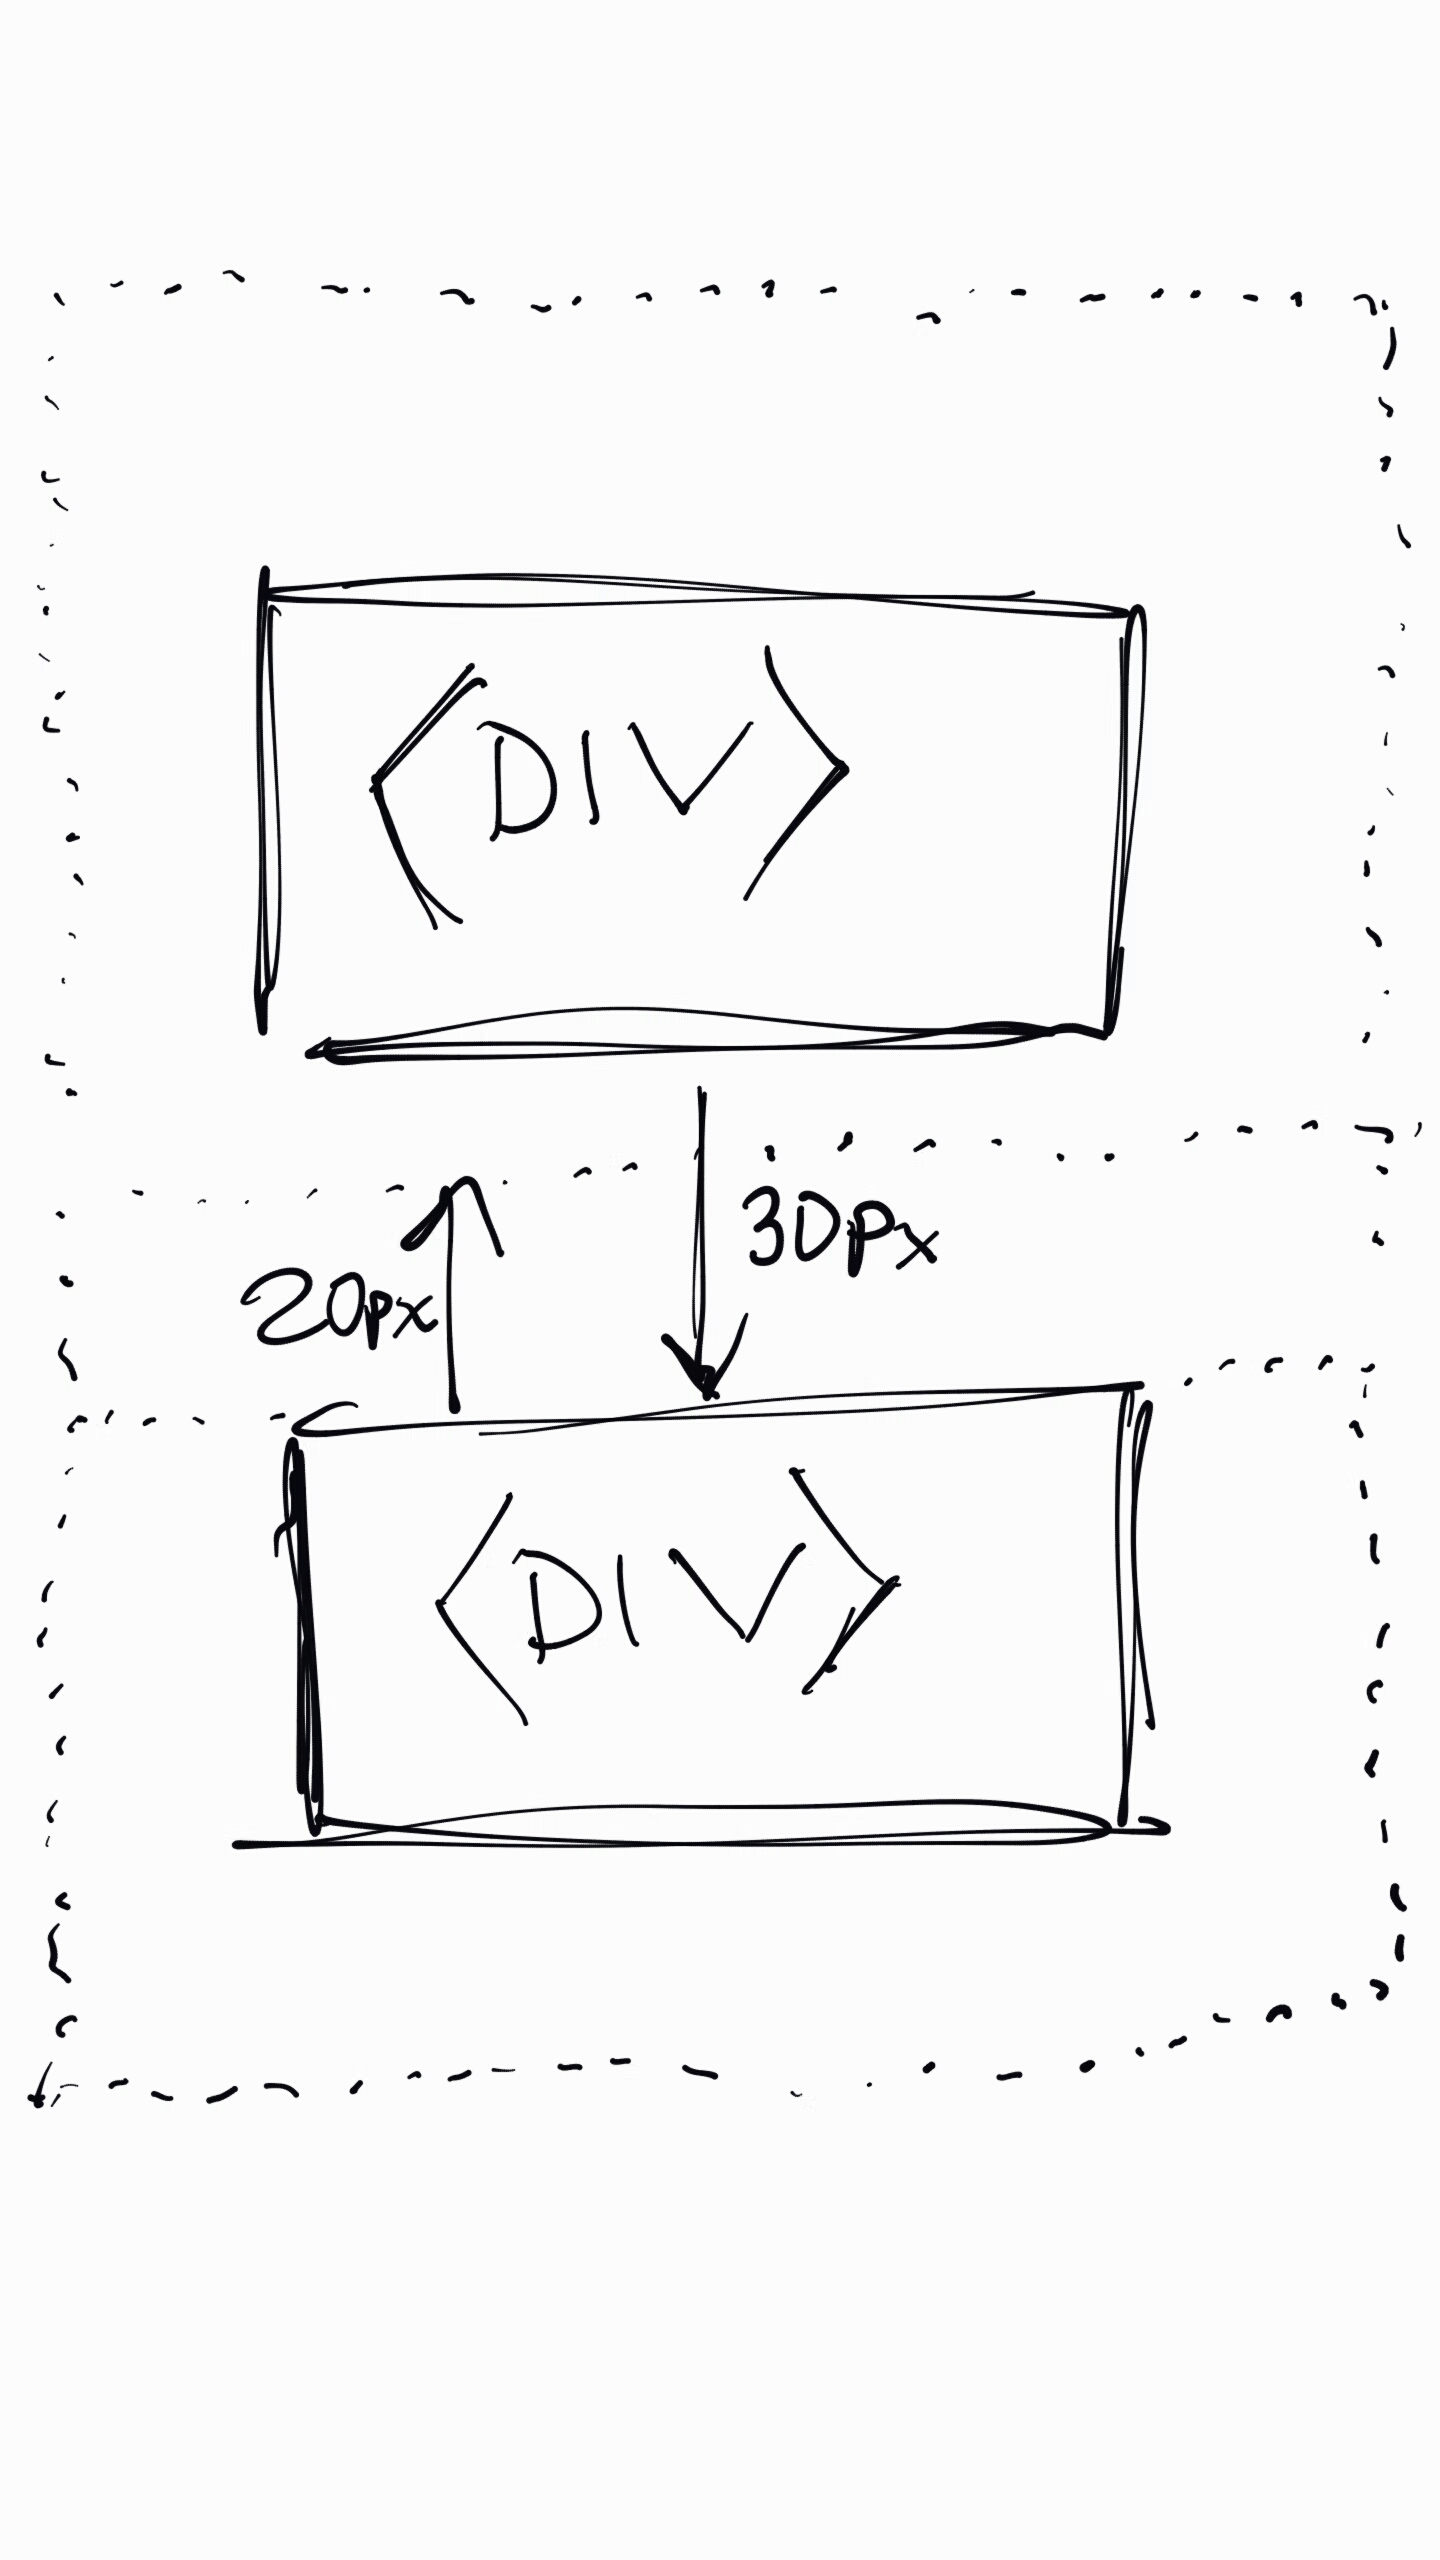 <DIV>
30px
20px
<DIV>